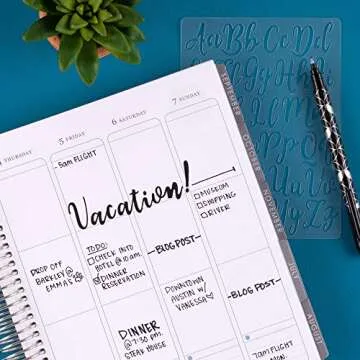 THURSDAY
5 FRIDAY
6 SATURDAY
7 SUNDAY
-5am FLIGHT
Vacation!
DROP OFF
BARKLEY @
EMMAS
TODO:
CHECK INTO
HOTEL @ 10 a.m.
DINNER
RESERVATION
DINNER
@ 7:30 pm.
STEAK HOUSE
-BLOG POST-
DOWNTOWN
AUSTIN w/
VANESSA ♡
MUSEUM
SHOPPING
RIVER
-BLOG POST-
7am FLIGHT
SEPTEMBER
OCTOBER
NOVEMBER
JULY
AUGUST
Aa Bb Cc Dd